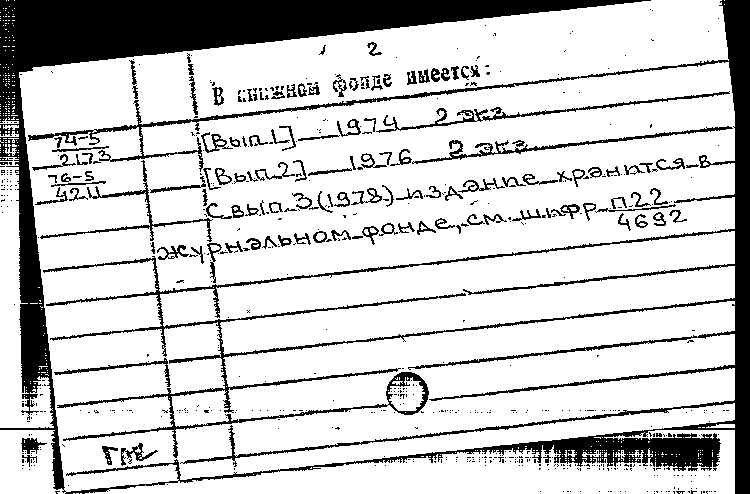 2
В книжном фонде имеется:
74-5
2173
[Вып.1] 1974 2 экз
76-5
4211
[Вып.2] 1976 2 экз.
С вып.3 (1978) издание хранится в
журнальном фонде, см. шифр П22
4692